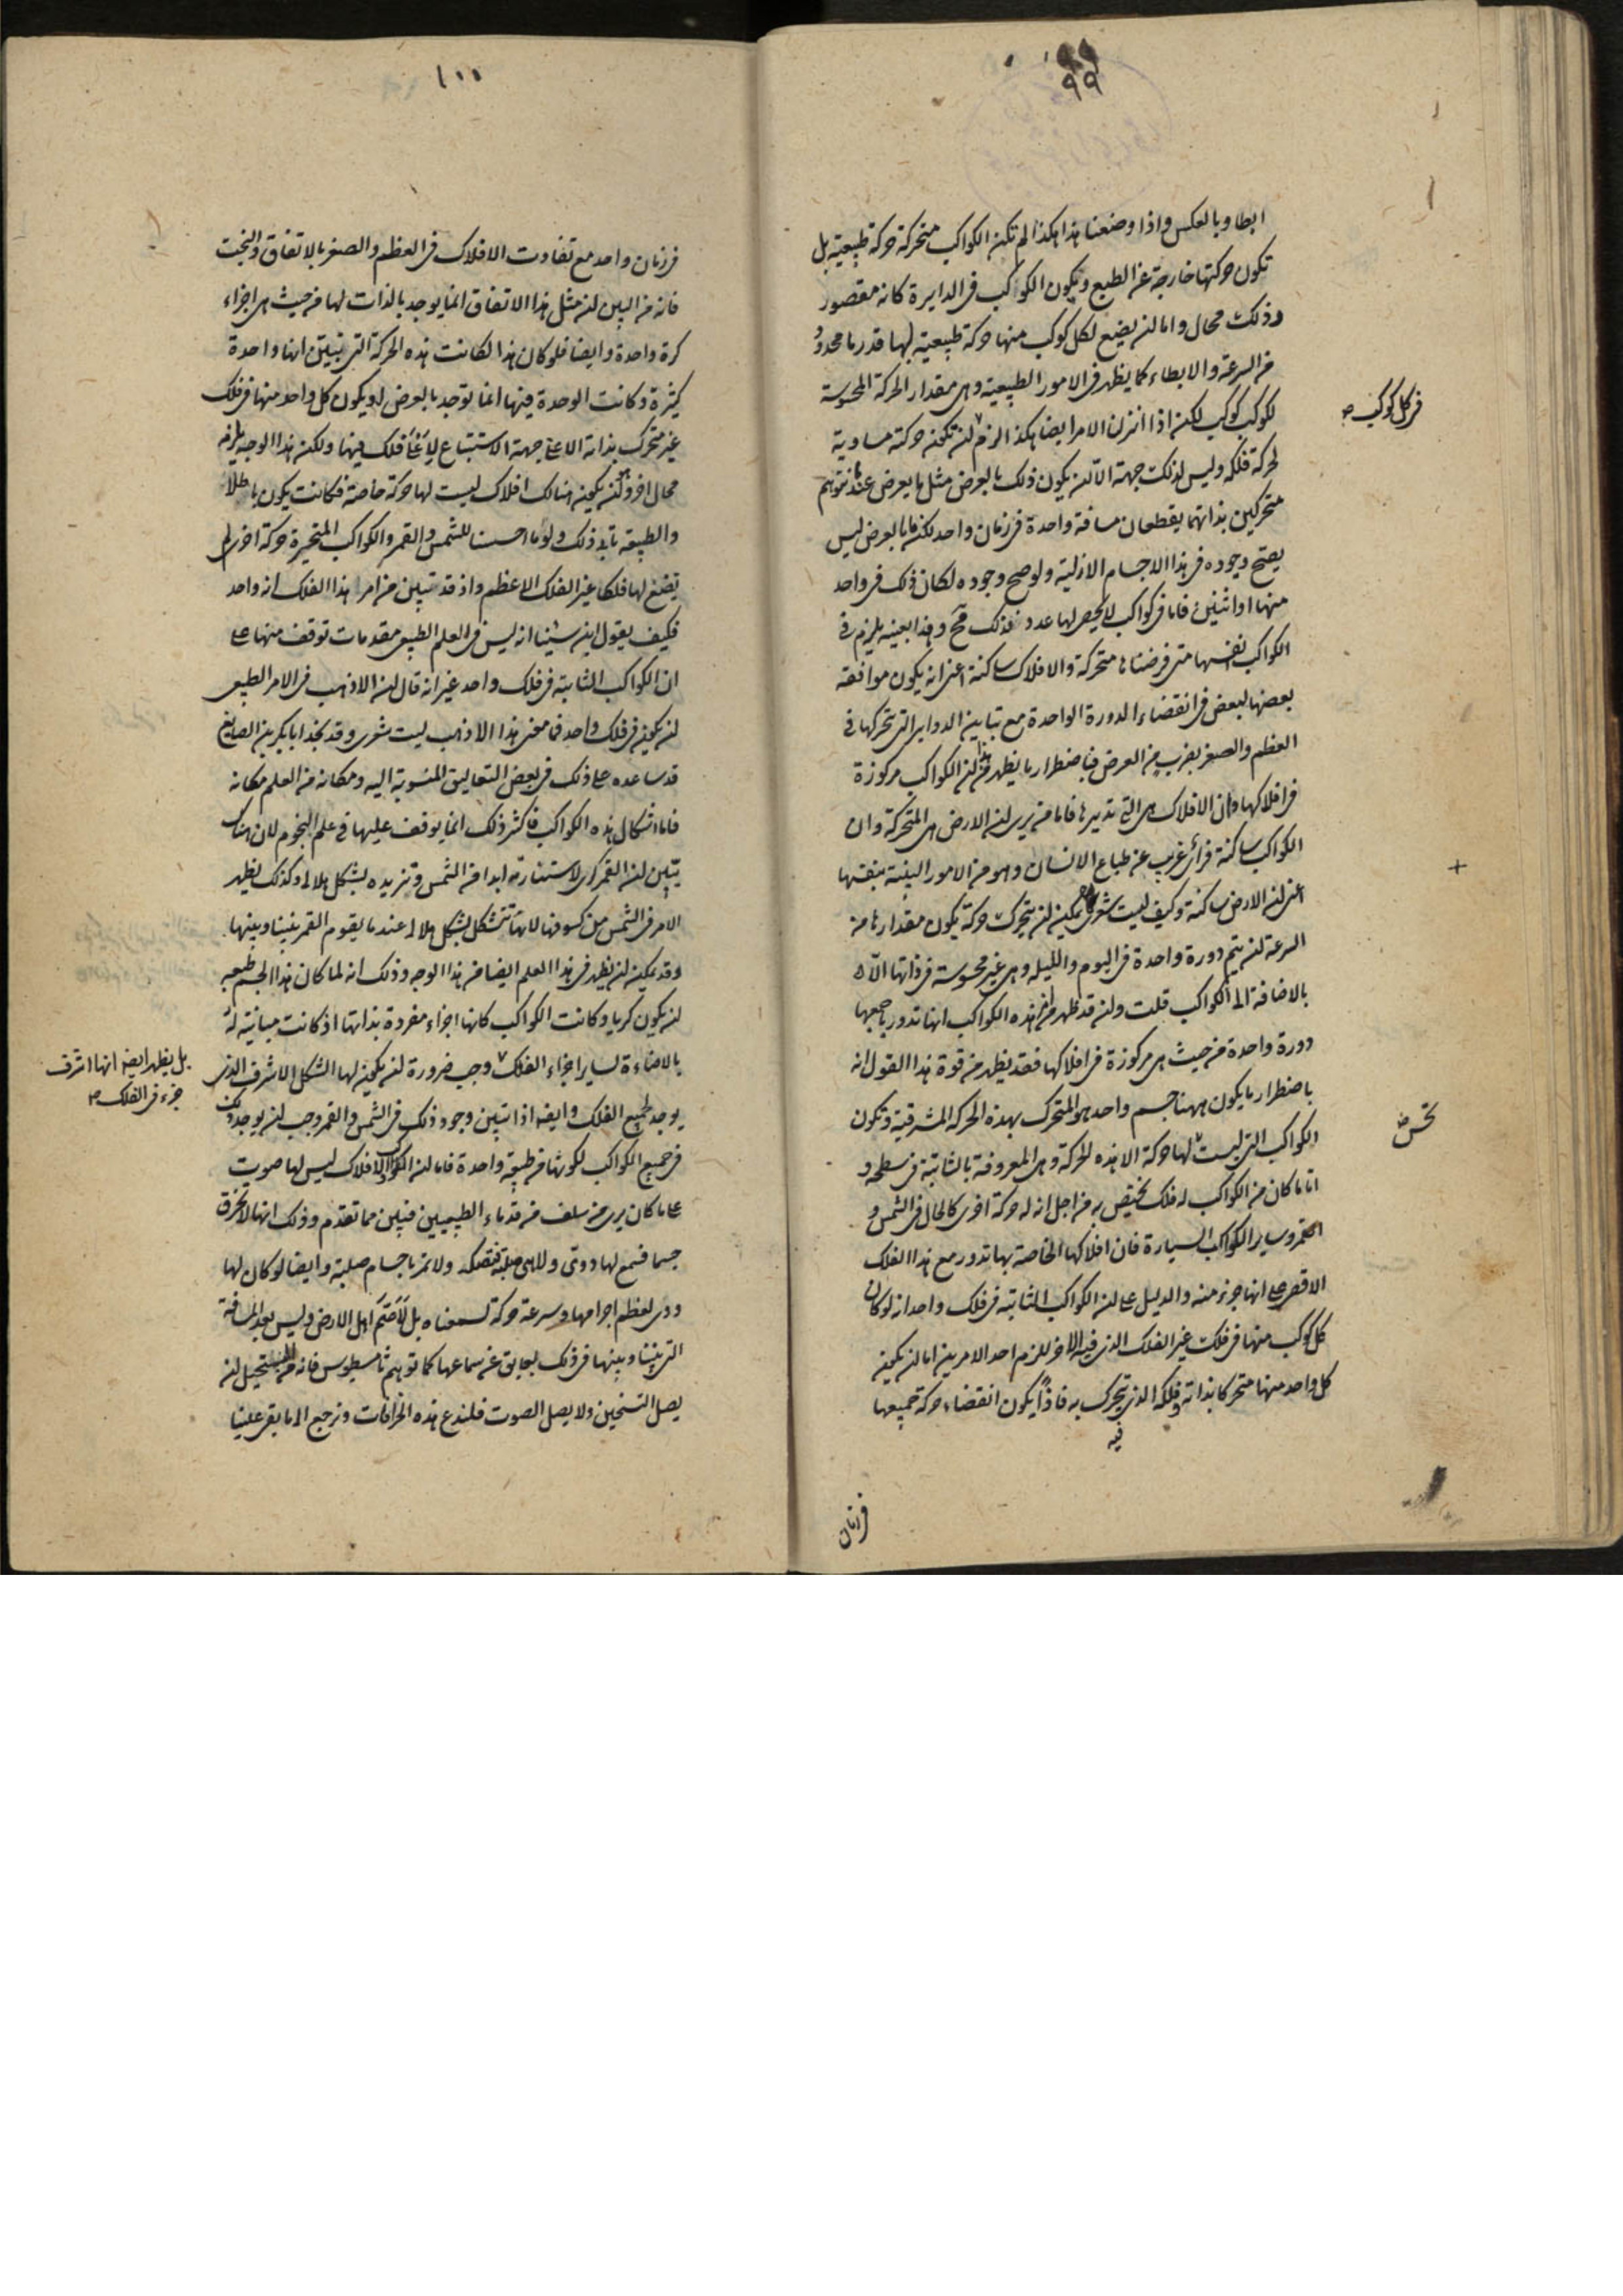 ٩٩
ابطا وبالعكس واذا وضعنا هذا هكذا لم تكن الكواكب متحركة حركة طبيعية بل
تكون حركتها خارجة عن الطبع وتكون الكواكب فى الدايرة كانه مقصور
وذلك محال واما لن يضع لكل كوكب منها حركة طبيعية لها قدر ما محدود
من السرعة والابطاء كما يظهر فى الامور الطبيعية وهى مقدار الحركة المحسوسة
فى كل كوكب
لكوكب كوكب لكن اذا انزل الامر ايضا هكذا لزم لن تكون حركته مساوية
لحركة فلكه وليس لذلك جهة الا لن يكون ذلك بالعرض مثل ما يعرض عندما نتوهم
متحركين بذاتهما يقطعان مسافة واحدة فى زمان واحد لكن ما بالعرض ليس
يصح وجوده فى هذا الاجسام الازلية ولو صح وجوده لكان ذلك فى واحد
منها او اثنين فاما فى كواكب لا يحصى لها عدد فذلك مح وهذا بعينه يلزم فى
الكواكب انفسها متى فرضناها متحركة والافلاك ساكنة اعنى انه يكون موافقة
بعضها لبعض فى انقضاء الدورة الواحدة مع تباين الدواير التى تتحركها فى
العظم والصغر بضرب من العرض فباضطرار ما يظهر من هذا لن الكواكب مركوزة
فى افلاكها وان الافلاك هى التى تديرها فاما من يرى لن الارض هى المتحركة وان
الكواكب ساكنة فرأى غريب عن طباع الانسان وهو من الامور البينة بنفسها
اعنى لن الارض ساكنة وكيف ليت شعرى يمكن لن يتحرك حركة يكون مقدارها من
السرعة لن يتم دورة واحدة فى اليوم والليلة وهى غير محسوسة فى ذاتها الا
بالاضافة الى الكواكب قلت ولن قد ظهر من امر هذه الكواكب انها تدور باجمعها
دورة واحدة من حيث هى مركوزة فى افلاكها فقد يظهر من قوة هذا القول انه
باضطرار ما يكون ههنا جسم واحد هو المتحرك بهذه الحركه المشرقية وتكون
الكواكب التى ليست لها حركة الا هذه الحركة وهى المعروفة بالثابتة فى سطحه و
اما ما كان من الكواكب له فلك يختص به من اجل انه له حركة اخرى كالحال فى الشمس و
القمر وساير الكواكب السيارة فان افلاكها الخاصة بها تدور مع هذا الفلك
الاقصى على انها جزء منه والدليل على لن الكواكب الثابتة فى فلك واحد انه لو كان
كل كوكب منها فى فلك غير الفلك الذى فيه الاخر للزم احد الامرين اما لن يكون
كل واحد منها متحركا بذاته وفلكه الذى يتحرك به فاذا يكون انقضاء حركة جميعها
فيه
فى زمان
١٠٠
فى زمان واحد مع تفاوت الافلاك فى العظم والصغر بالاتفاق والبخت
فانه من البين لن مثل هذا الاتفاق انما يوجد بالذات لها من حيث هى اجزاء
كرة واحدة وايضا فلو كان هذا لكانت هذه الحركة التى تبين انها واحدة
كثيرة وكانت الوحدة فيها انما توجد بالعرض او يكون كل واحد منها فى فلك
غير متحرك بذاته الا على جهة الاستتباع فلك فيها ولكن هذا الوجه يلزمه
محال اخر وهو لن يكون هنالك افلاك ليست لها حركة خاصة فكانت يكون باطلا
والطبيعة تابى ذلك ولو ما احسسنا للشمس والقمر والكواكب المتحيرة حركة اخرى لم
نضع لها فلكا غير الفلك الاعظم واذ قد تبين من امر هذا الفلك انه واحد
فكيف يقول ابن سينا انه ليس فى العلم الطبيعى مقدمات توقف منها على
ان الكواكب الثابتة فى فلك واحد غير انه قال لن الاذهب فى الامر الطبيعى
لن تكون فى فلك واحد فما معنى هذا الاذهب ليت شعرى وقد نجد ابا بكر بن الصايغ
قد ساعده على ذلك فى بعض التعاليق المنسوبة اليه ومكانه من العلم مكانه
فاما اشكال هذه الكواكب فاكثر ذلك انما يوقف عليها فى علم النجوم لان هناك
يتبين لن القمر كرى لاستنارته ابدا من الشمس وتزيده بشكل هلالى وكذلك يظهر
الامر فى الشمس من كسوفها لانها تتشكل بشكل هلالى عندما يقوم القمر بيننا وبينها
وقد يمكن لن يظهر فى هذا العلم ايضا من هذا الوجه وذلك انه لما كان هذا الجسم طبيعه
لن يكون كريا وكانت الكواكب كانها اجزاء مفردة بذاتها اذ كانت مباينة له
بالاضاءة لساير اجزاء الفلك وجب ضرورة لن يكون لها الشكل الاشرف الذى
بل يظهر ايضه انها اشرف
جزء فى الفلك
يوجد لجميع الفلك وايضه اذا تبين وجود ذلك فى الشمس والقمر وجب لن يوجد ذلك
فى جميع الكواكب لكونها من طبيعة واحدة فاما لن الكواكب والافلاك ليس لها صوت
على ما كان يرى من سلف من قدماء الطبيعيين فبين مما تقدم وذلك انها لا تخرق
جسما فنسمع لها دوى ولا هى صلبة ولا تمر باجسام صلبة وايضا لو كان لها
دوى لعظم اجرامها وسرعة حركة لسمعناه بل لأصمّ اهل الارض وليس بعد المسافة
التى بيننا وبينها فى ذلك بعايق عن سماعها كما توهم ثامسطيوس فانه من المستحيل لن
يصل التسخين ولا يصل الصوت فلندع هذه الخرافات ونرجع الى ما بقى علينا